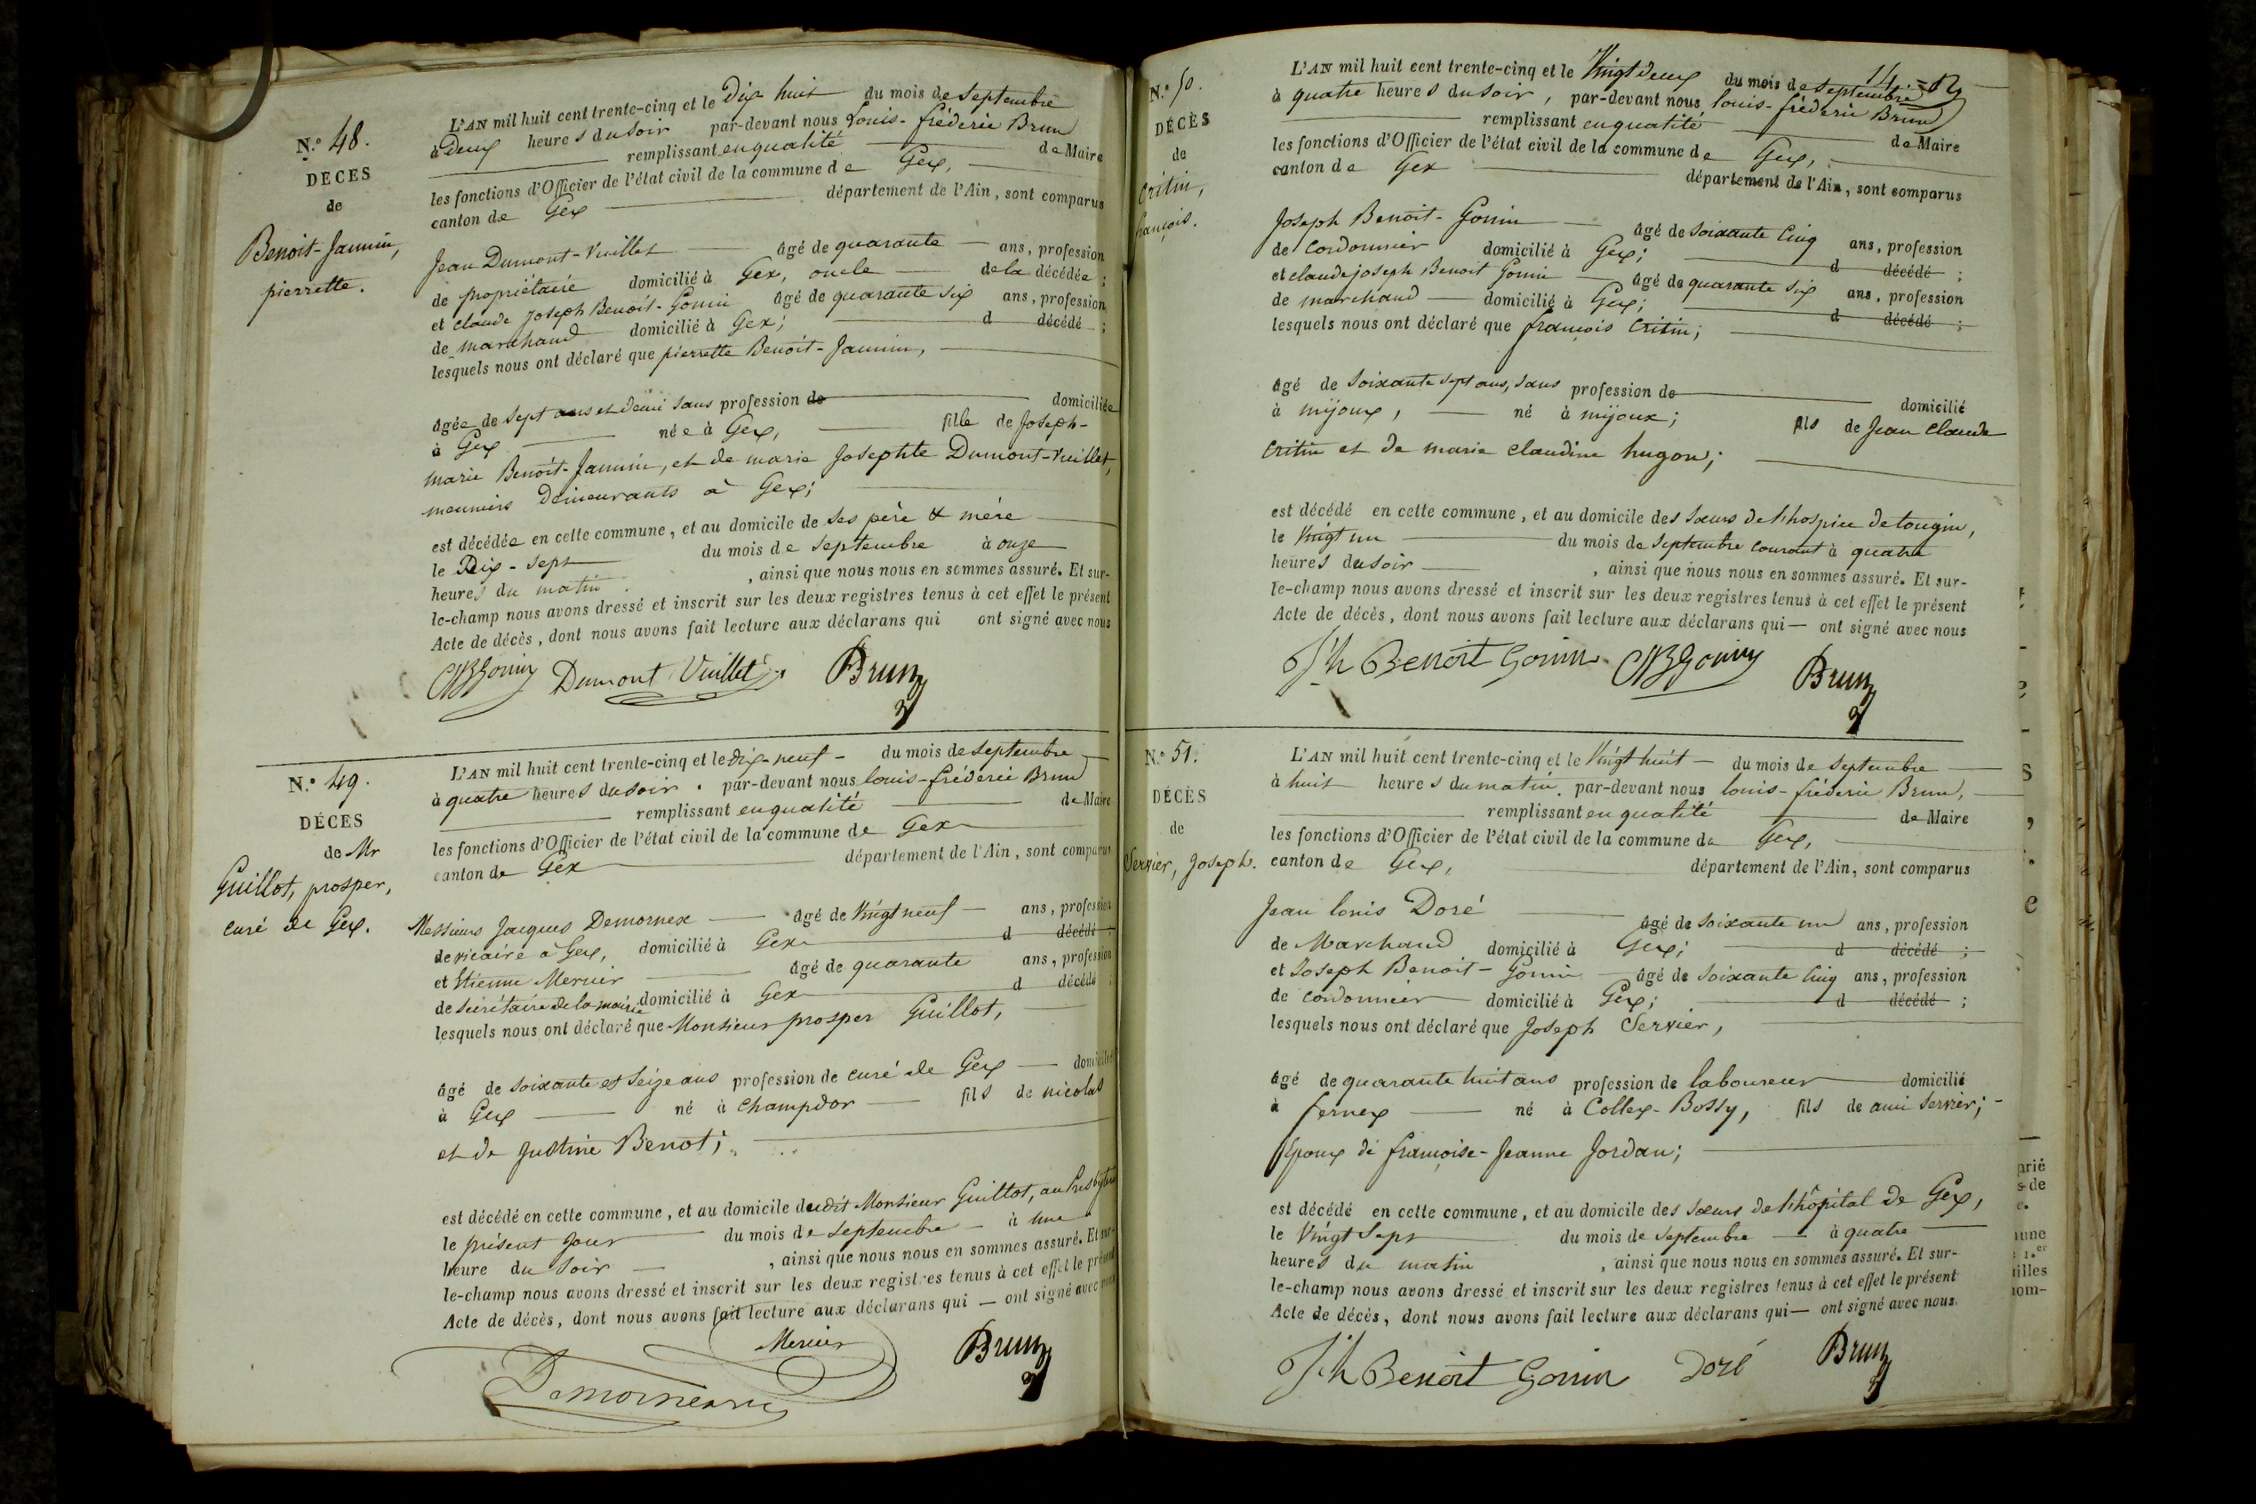 N.° 48.
DÉCES
de
Benoit-Jannin,
pierrette.
L'AN mil huit cent trente-cinq et le Dix huit du mois de septembre
à Deux heures du soir par-devant nous Louis-fréderic Brun
remplissant en qualité de Maire
les fonctions d'Officier de l'état civil de la commune de Gex,
canton de Gex département de l'Ain, sont comparus
Jean Dumont-Vuillet âgé de quarante ans, profession
de propriétaire domicilié à Gex, oncle de la décédée ;
et claude joseph Benoit-Gonin âgé de quarante six ans, profession
de marchand domicilié à Gex; d décédé ;
lesquels nous ont déclaré que pierrette Benoit-Jannin,
âgée de sept ans et demi sans profession de domiciliée
à Gex née à Gex, fille de Joseph-
marie Benoit-Jannin, et de marie Josephte Dumont-Vuillet,
meuniers demeurants à Gex;
est décédée en cette commune, et au domicile de ses père & mère
le Dix-sept du mois de septembre à onze
heures du matin , ainsi que nous nous en sommes assuré. Et sur-
le-champ nous avons dressé et inscrit sur les deux registres tenus à cet effet le présent
Acte de décès, dont nous avons fait lecture aux déclarans qui ont signé avec nous
CJBGonin Dumont Vuillet Brun
N.° 49.
DÉCES
de Mr
Guillot, prosper,
curé de Gex.
L'AN mil huit cent trente-cinq et le dix-neuf du mois de septembre
à quatre heures du soir . par-devant nous louis-fréderic Brun
remplissant en qualité de Maire
les fonctions d'Officier de l'état civil de la commune de Gex
canton de Gex département de l'Ain, sont comparus
Messieurs Jacques Demornex âgé de Vingt neuf ans, profession
de vicaire à Gex, domicilié à Gex d décédé ;
et Etienne Mercier âgé de quarante ans, profession
de sécrétaire de la mairie domicilié à Gex d décédé ;
lesquels nous ont déclaré que Monsieur prosper Guillot,
âgé de soixante et seize ans profession de curé de Gex domicilié
à Gex né à champdor fils de nicolas
et de justine Benot;
est décédé en cette commune, et au domicile dudit Monsieur Guillot, au Presbytère
le présent jour du mois de septembre à une
heure du soir , ainsi que nous nous en sommes assuré. Et sur-
le-champ nous avons dressé et inscrit sur les deux registres tenus à cet effet le présent
Acte de décès, dont nous avons fait lecture aux déclarans qui ont signé avec nous
Mercier Brun
Demornex
N.° 50.
DÉCÈS
de
Critin,
françois.
14.
L'AN mil huit cent trente-cinq et le Vingt deux du mois de septembre
à quatre heures du soir, par-devant nous louis-fréderic Brun
remplissant en qualité de Maire
les fonctions d'Officier de l'état civil de la commune de Gex,
canton de Gex département de l'Ain, sont comparus
Joseph Benoit-Gonin âgé de soixante cinq ans, profession
de cordonnier domicilié à Gex; d décédé ;
et claude joseph Benoit Gonin âgé de quarante six ans, profession
de marchand domicilié à Gex; d décédé ;
lesquels nous ont déclaré que françois Critin;
âgé de soixante sept ans, sans profession de domicilié
à mijoux, né à mijoux; fils de Jean claude
critin et de marie claudine hugon;
est décédé en cette commune, et au domicile des sœurs de l'hospice de tougin,
le Vingt un du mois de septembre courant à quatre
heures du soir , ainsi que nous nous en sommes assuré. Et sur-
le-champ nous avons dressé et inscrit sur les deux registres tenus à cet effet le présent
Acte de décès, dont nous avons fait lecture aux déclarans qui ont signé avec nous
Jh Benoit Gonin CJBGonin Brun
N.° 51.
DÉCÈS
de
Servier, Joseph.
L'AN mil huit cent trente-cinq et le Vingt huit du mois de septembre
à huit heures du matin. par-devant nous louis-fréderic Brun,
remplissant en qualité de Maire
les fonctions d'Officier de l'état civil de la commune de Gex,
canton de Gex, département de l'Ain, sont comparus
Jean louis Doré âgé de soixante un ans, profession
de Marchand domicilié à Gex; d décédé ;
et Joseph Benoit-Gonin âgé de soixante cinq ans, profession
de cordonnier domicilié à Gex; d décédé ;
lesquels nous ont déclaré que Joseph Servier,
âgé de quarante huit ans profession de laboureur domicilié
à fernex né à Collex-Bossy, fils de ami servier;
Epoux de françoise-Jeanne Jordan;
est décédé en cette commune, et au domicile des sœurs de l'hôpital de Gex,
le Vingt Sept du mois de septembre à quatre
heures du matin , ainsi que nous nous en sommes assuré. Et sur-
le-champ nous avons dressé et inscrit sur les deux registres tenus à cet effet le présent
Acte de décès, dont nous avons fait lecture aux déclarans qui ont signé avec nous
Jh Benoit Gonin Doré Brun